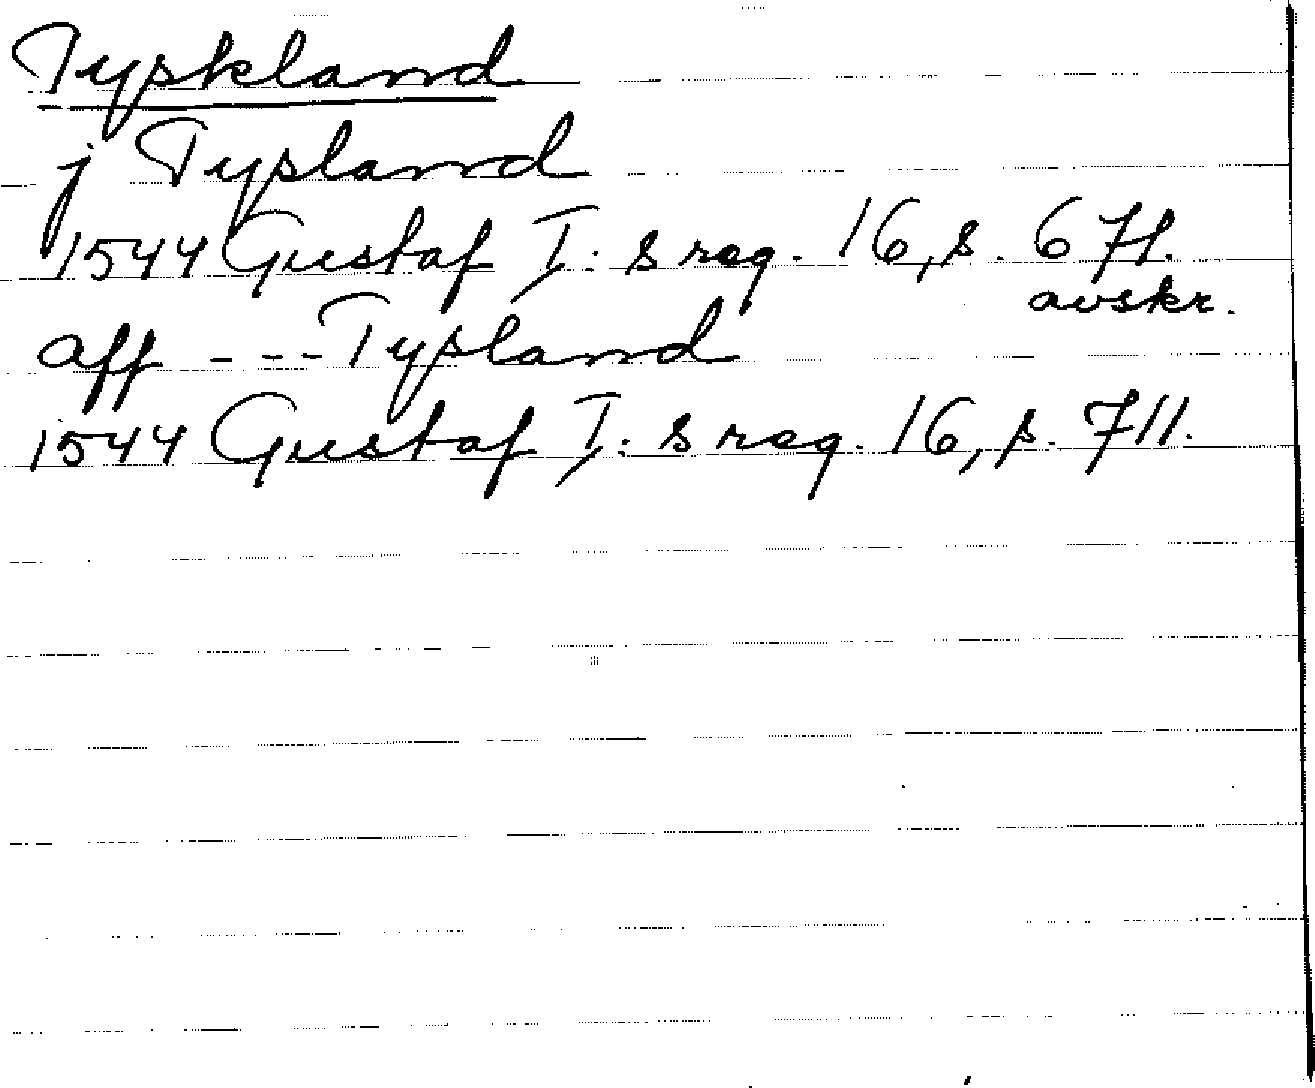 Tyskland
j Tysland
1544 Gustaf I:s reg. 16, s. 671.
avskr.
aff --- Tysland
1544 Gustaf I:s reg. 16, s. 711.